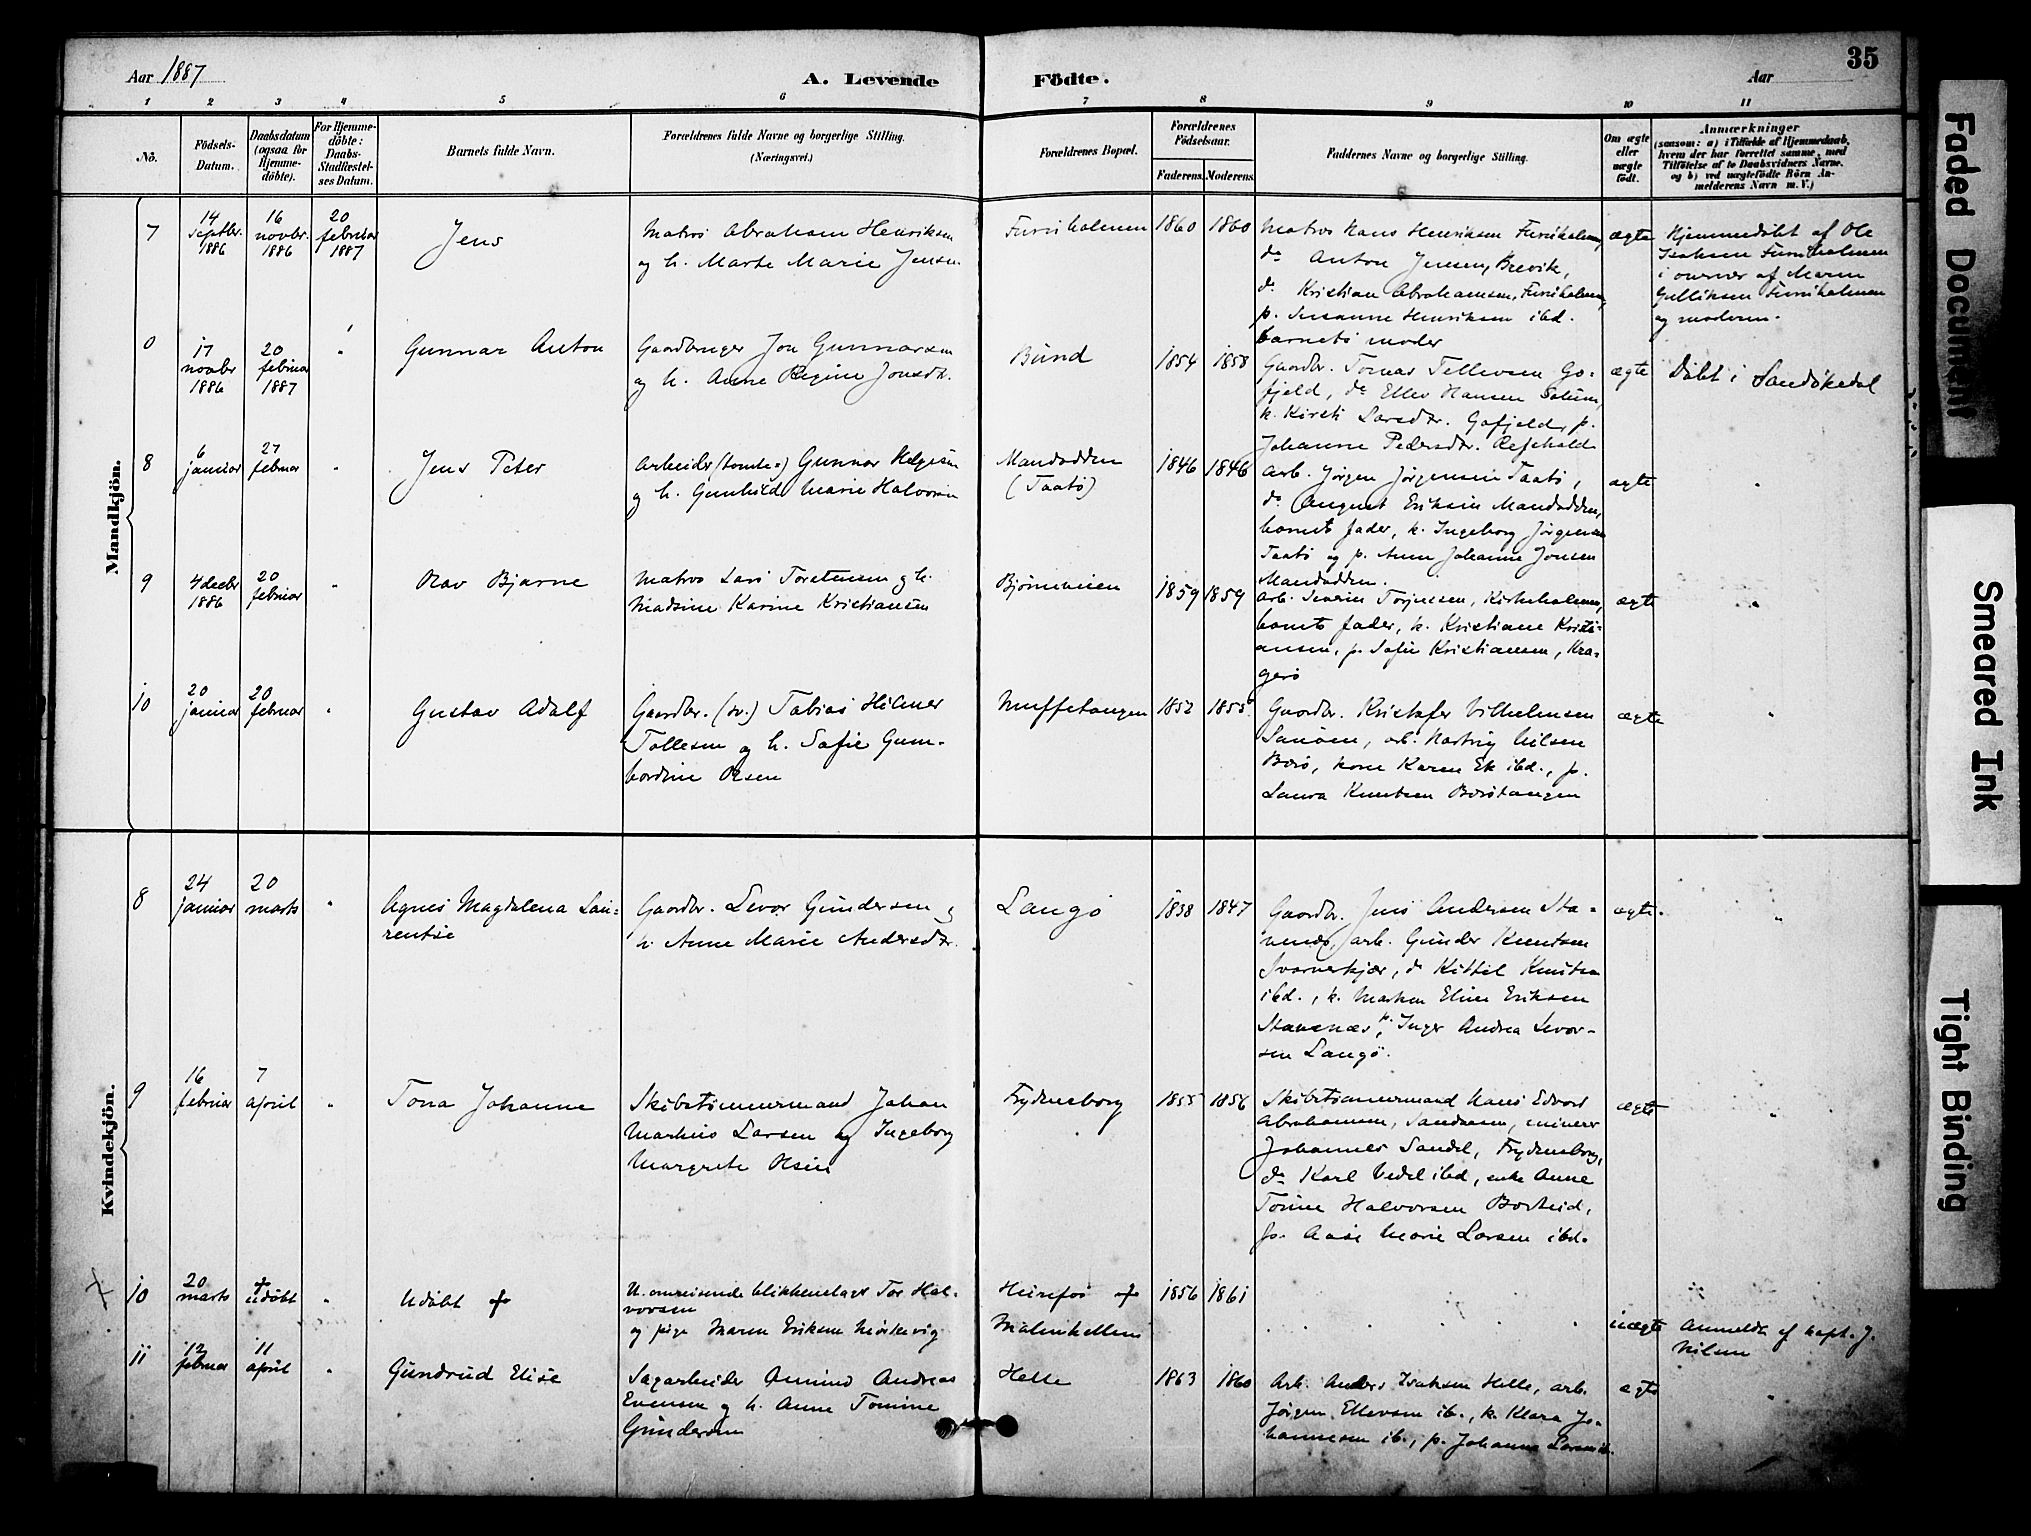 Aar 1887
A. Levende
Födte.
Aar
35
1 2 3 4 5 6 7 8 9 10 11
No.
Födsels-
Datum.
Daabsdatum
(ogsaa for
Hjemme-
döbte).
For Hjemme-
döbte:
Daabs-
Stadfæstel-
ses Datum.
Barnets fulde Navn.
Forældrenes fulde Navne og borgerlige Stilling.
(Næringsvei.)
Forældrenes Bopæl.
Forældrenes
Födselsaar.
Faderens. Moderens.
Faddernes Navne og borgerlige Stilling.
Om ægte
eller
uægte
födt.
Anmærkninger
(saasom: a) i Tilfælde af Hjemmedaab,
hvem der har forrettet samme, med
Tilföielse af to Daabsvidners Navne,
og b) ved uægtefödte Börn An-
melderens Navn m. V.)
Mandkjön.
7
14
Septbr.
1886
16
novbr.
1886
20
februar
1887
Jens
Matros Abraham Henriksen
og h. Marte Marie Jensen
Furuholmen
1860
1860
Matros Hans Henriksen Furuholmen,
do Anton Jensen, Brevik,
do Kristian Abrahamsen, Furuholmen,
p. Susanne Henriksen ibd.
barnets moder
ægte
Hjemmedøbt af Ole
Isaksen Furuholmen
i overvær af Maren
Gulliksen Furuholmen
og moderen.
0
17
novbr
1886
20
februar
1887
"
Gunnar Anton
Gaardbruger Jon Gunnarsen
og h. Anne Regine Jonsdtr.
Bund
1854
1858
Gaardbr. Tomas Tellevsen Go-
fjeld, do Ellev Hansen
k. Kirsti Larsdtr. Gofjeld, p.
Johanne Pedersdtr.
ægte
Døbt i Sandøkedal
8
6
januar
27
februar
"
Jens Peter
Arbeider (tomte=) Gunnar Helgesen
og h. Gunhild Marie Halvorsen
Mandodden
(Taatø)
1846
1846
Arb. Jørgen Jørgensen Taatø,
do August Eriksen Mandodden,
barnets fader, k. Ingeborg Jørgensen
Taatø og p. Anne Johanne Jonsen
Mandodden.
ægte
"
9
4 decbr
1886
20
februar
"
Olav Bjarne
Matros Lars Torstensen og h.
Madsine Karine Kristiansen
1859
1859
Arb. Severin Torjussen, Kirkeholmen,
barnets fader, k. Kristiane Kristi-
ansen, p. Sofie Kristiansen, Kra-
gerø
ægte
"
10
20
januar
20
februar
"
Gustav Adolf
Gaardbr. (sv.) Tobias Hilmer
Tollesen og h. Sofie Gum-
bordine Olsen
Muffetangen
1852
1855
Gaardbr. Kristofer Vilhelmsen
arb. Hartvig Nilsen
Barø, kone Karen Ek ibd., p.
Laura Knutsen Barøtangen
ægte
"
Kvindekjön.
8
24
januar
20
marts
"
Agnes Magdalena Lau-
rentse
Gaardbr. Levor Gundersen og
h. Anne Marie Andersdtr.
Langø
1838
1847
Gaardbr. Jens Andersen Sta-
venæs, arb. Gunder Knutsen
do Kittil Knutsen
ibd., k. Maren Eline Eriksen
Stavenæs, p. Inger Andrea Levor-
sen Langø.
ægte.
"
9
16
februar
7
april
"
Tona Johanne
Skibstømmermand Johan
Markus Larsen og Ingeborg
Margrete Olsen
Frydensborg
1855
1856
Skibstømmermand Hans Edvart
Abrahamsen, Sandaasen, minerer
Johannes Sandel, Frydensborg,
do Karl Vedel ibd, enke Anne
Tomine Halvorsen Barteid,
p. Aase Marie Larsen ibd.
ægte
"
10
20
marts
+
udøbt
"
Udøbt +
U. omreisende blikkenslager Tor Hal-
vorsen
og pige Maren Eriksen Mørkevig
+
1856
1861
uægte
Anmeldt af kapt. J.
Nilsen
11
12
februar
11
april
"
Gundrud Elise
Sagarbeider Amund Andreas
Evensen og h. Anne Tomine
Gundersen
Helle
1863
1860
Arb. Anders Isaksen Helle, arb.
Jørgen Ellevsen ib., k. Klara Jo-
hannesen ib., p. Johanne Larsen ib.
ægte
"
Faded Document
Smeared Ink
Tight Binding